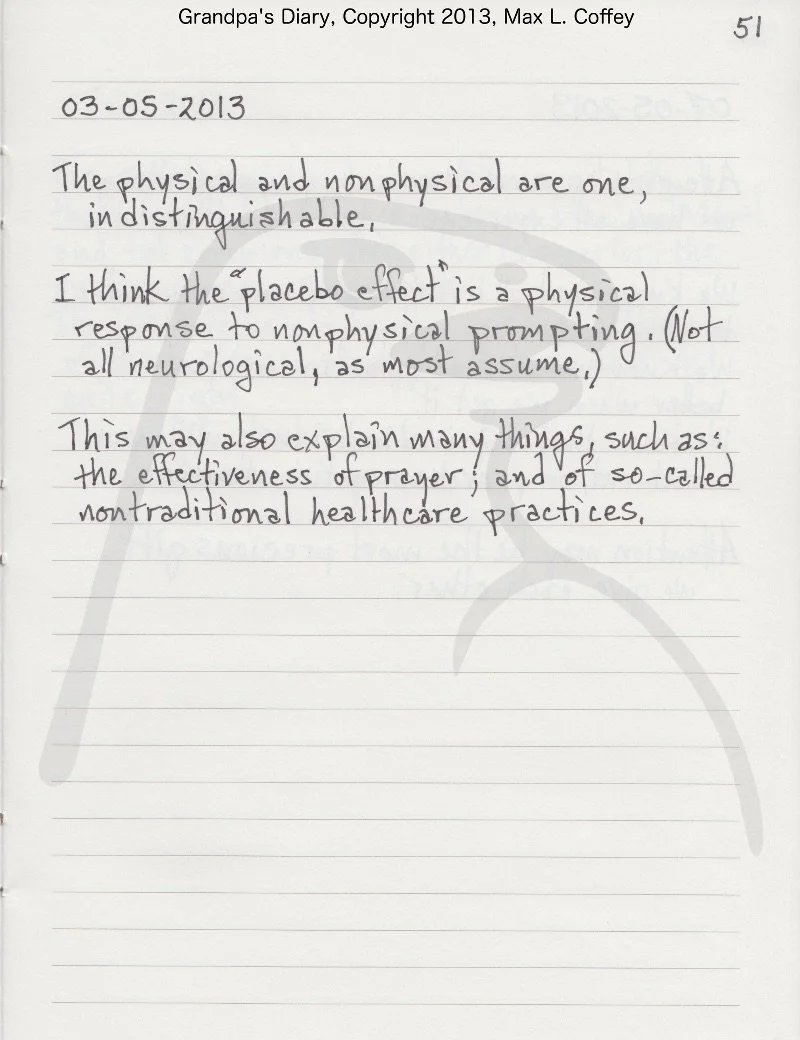 Grandpa's Diary, Copyright 2013, Max L. Coffey
51
03-05-2013
The physical and nonphysical are one,
indistinguishable.
I think the "placebo effect" is a physical
response to nonphysical prompting. (Not
all neurological, as most assume.)
This may also explain many things, such as:
the effectiveness of prayer; and of so-called
nontraditional healthcare practices.